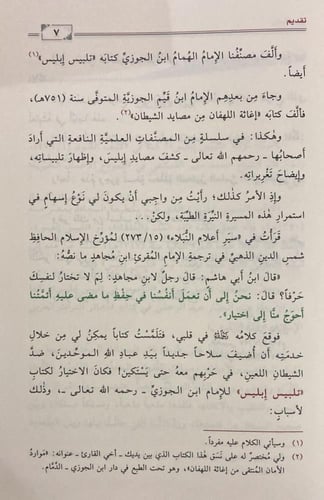 تقديم
٧
وألَّفَ مصنِّفُنا الإمامُ الهُمامُ ابنُ الجوزيِّ كتابَه «تلبيس إبليس»(١)
أيضاً.
وجاءَ مِن بعدِهِم الإمامُ ابنُ قَيِّمِ الجوزيَّةِ المتوفَّى سنة (٧٥١هـ)،
فألَّفَ كتابَه «إغاثة اللهفان مِن مصايد الشيطان»(٢).
وهكذا: في سلسلةٍ مِن المصنَّفاتِ العلميَّةِ النافعةِ التي أرادَ
أصحابُها - رحمهم الله تعالى - كشفَ مصايدِ إبليسَ، وإظهارَ تلبيساتِه،
وإيضاحَ تَغْريراتِهِ.
وإذِ الأمرُ كذلك؛ رأيتُ مِن واجبي أنْ يكونَ لي نَوْعُ إسهامٍ في
استمرارِ هذه المسيرةِ النيِّرةِ الطيِّبة، ولكنْ...
قرَأتُ في «سير أعلام النُّبلاء» (٢٧٣/١٥) لمُؤرِّخِ الإسلامِ الحافظِ
شمسِ الدينِ الذهبيِّ في ترجمةِ الإمامِ المُقرئِ ابنِ مُجاهدٍ ما نصُّه:
«قالَ ابنُ أبي هاشم: قالَ رجلٌ لابنِ مجاهدٍ: لِمَ لا تختارُ لنفسِكَ
حَرْفاً؟ قالَ: نحنُ إلى أن تعملَ أنفُسُنا في حِفْظِ ما مضى عليهِ أئمَّتُنا
أحوَجُ منَّا إلى اختيار».
فوقعَ كلامُه ﷺ في قلبي، فتلمَّستُ كتاباً يمكنُ لي مِن خلالِ
خدمتِهِ أن أضيفَ سلاحاً جديداً بيَدِ عبادِ اللهِ الموحِّدينَ، ضدَّ
الشيطانِ اللعينِ، في حَرْبِهِم معهُ حتى يَسْتَكينَ! فكانَ الاختيارُ لكتابِ
«تلبيس إبليس» للإمام ابن الجوزي - رحمه الله تعالى -، وذلك
لأسبابٍ:
(١) وسيأتي الكلام عليه مفرداً.
(٢) ولي مُختصرٌ له على نَسَق هذا الكتاب الذي بين يديك - أخي القارئ - عنوانه: «موارد
الأمان المنتقى من إغاثة اللهفان»، وهو تحت الطبع في دار ابن الجوزي - الدَّمَّام.